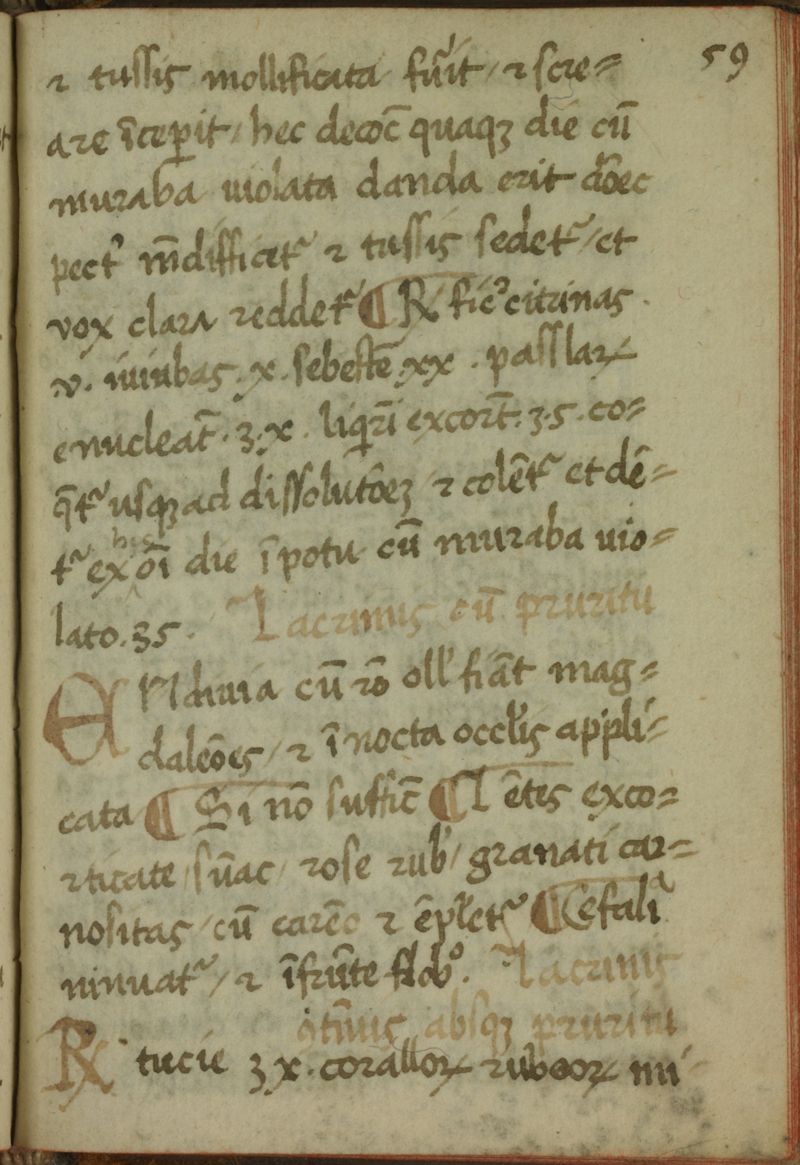 59
⁊ tussis mollificata fu͛it / ⁊ scre=
are īcep̱it / hec decoc̄ quaqꝫ die cū
muraba uiolata danda erit do᷒ec
pect᷒ mūdifficet᷑ ⁊ tussis sedet᷑ / et
vox clara reddet᷑ ¶ ℞ fic᷒ citrinas .
.v. iuiubas . x . sebestē . xx . passlaꝝ
enucleat̄ . ʒ . x . liq̇ri᷒ excort̄ . ʒ . 5 . co=
q̄t᷑ usqꝫ ad dissolutōeꝫ ⁊ colēt᷑ et dē=
t᷑ ex his oī die ī potu cū muraba uio=
lato . ʒ 5 . Lacrimis cū pruritu
ENdiuia cū ro᷒ oll᷒ fiāt mag=
daleōes / ⁊ ī nocta occl᷒is appli=
cata ¶ Si nō suffic̄ ¶ Lētes exco=
rticate / sūac / rose rub᷒ / granati car=
nositas / cū carēo ⁊ ēpl᷒et᷑ ¶ Cefali᷒
ninuat᷑ / ⁊ ī frūte
Lacrimis
ꝯtīuis absqꝫ pruritu
℞ tucie ʒ x . coralloꝝ rubeoꝝ mi=